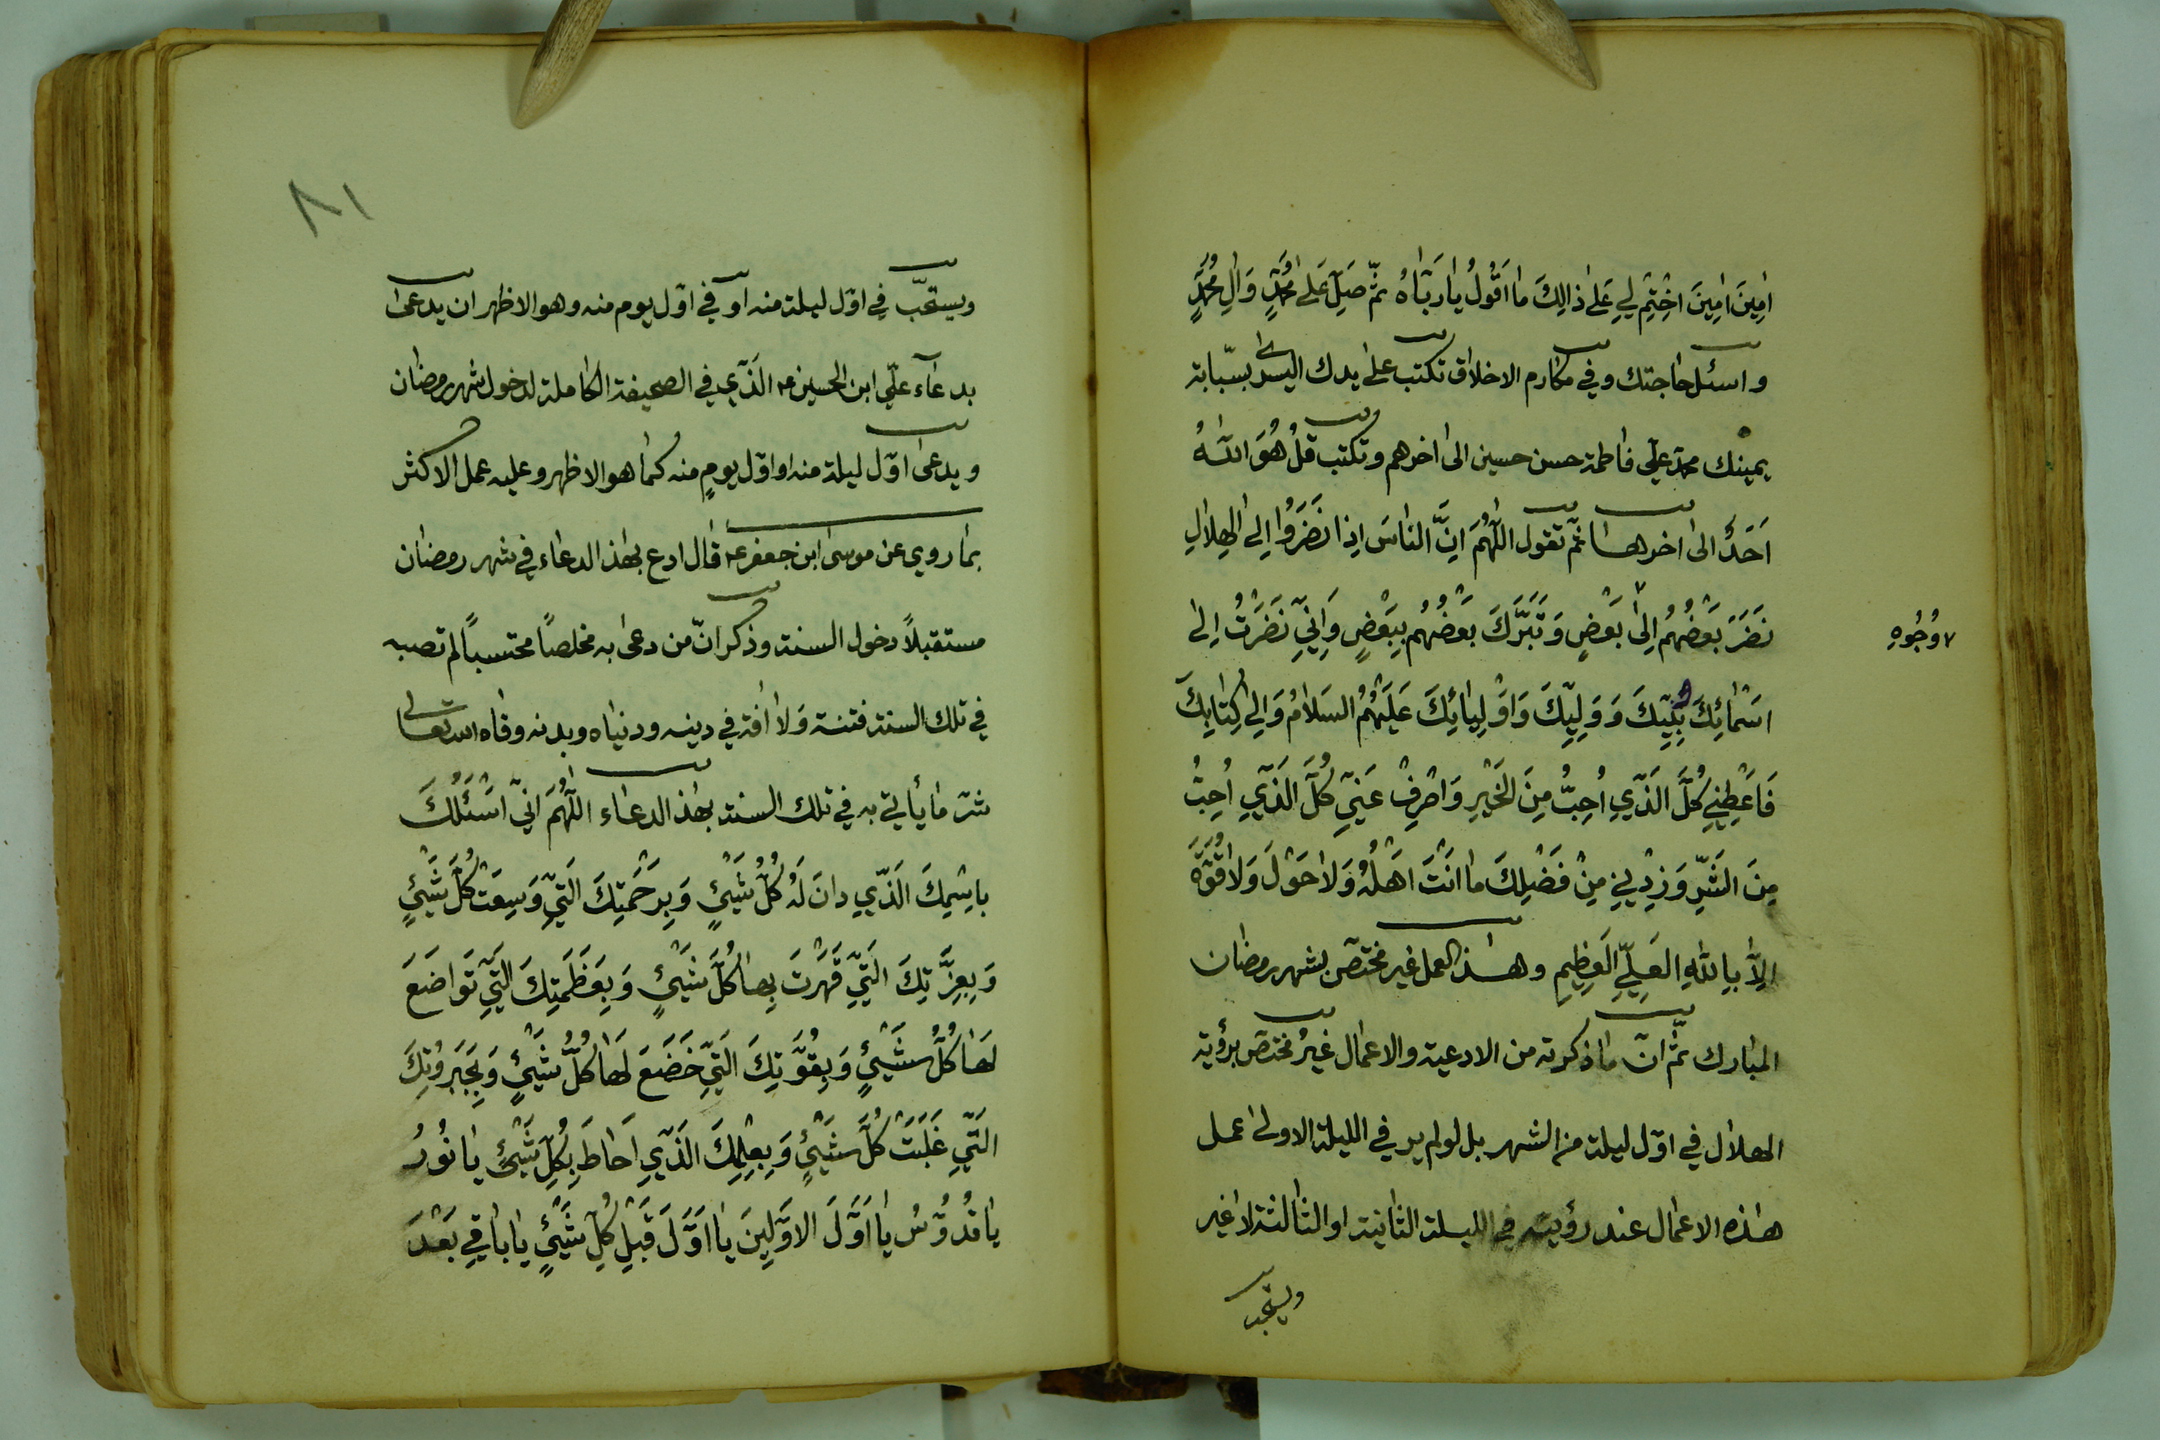 اٰمِينَ اٰمِينَ اخْتِمْ لِي عَلٰى ذٰلِكَ مٰا اَقُولُ يٰا رَبّٰاهُ ثمّ صَلِّ عَلٰى مُحَمَّدٍ وَاٰلِ مُحَمَّدٍ
واسئل حاجتك وفي مكارم الاخلاق تكتب على يدك اليسرى بسبّابة
يمينك محمد علي فاطمة حسن حسين الى اخرهم وتكتب قُلْ هُوَ اللّٰهُ
اَحَدٌ الى اخرها ثمّ تقول اَللّٰهُمَّ اِنَّ النّٰاسَ اِذٰا نَضَرُوا اِلَى الْهِلٰالِ
نَضَرَ بَعْضُهُمْ اِلىٰ بَعْضٍ وَتَبَرَّكَ بَعْضُهُمْ بِبَعْضٍ وَاِنّي نَضَرْتُ اِلىٰ
٧ وُجُوهِ
اَسْمٰائِكَ نَبِيِّكَ وَوَلِيِّكَ وَاَوْلِيٰائِكَ عَلَيْهِمُ السَّلٰامُ وَاِلى كِتٰابِكَ
فَاَعْطِني كُلَّ الَّذي اُحِبُّ مِنَ الْخَيْرِ وَاصْرِفْ عَنّي كُلَّ الَّذي اُحِبُّ
مِنَ الشَّرِّ وَزِدْني مِنْ فَضْلِكَ مٰا اَنْتَ اَهْلُهُ وَلٰا حَوْلَ وَلٰا قُوَّةَ
اِلّٰا بِاللّٰهِ الْعَلِيِّ الْعَظِيمِ وهذا العمل غير مختصّ بشهر رمضان
المبارك ثمّ انّ ما ذكرته من الادعية والاعمال غير مختصّ برؤية
الهلال في اوّل ليلة من الشهر بل لو لم ير في الليلة الاولى عمل
هذه الاعمال عند رؤيته في الليلة الثانية او الثالثة لا غير
ويستحبّ
٨١
ويستحبّ في اوّل ليلة منه او في اوّل يوم منه وهو الاظهر ان يدعى
بدعآء عليّ ابن الحسين ع الّذي في الصحيفة الكاملة لدخول شهر رمضان
ويدعى اوّل ليلة منه او اوّل يومٍ منه كما هو الاظهر وعليه عمل الاكثر
بما روي عن موسى ابن جعفر ع قال ادع بهذا الدعاء في شهر رمضان
مستقبلاً دخول السنة وذكر انّ من دعى به مخلصاً محتسباً لم تصبه
في تلك السنة فتنة ولا افة في دينه ودنياه وبدنه وقاه الله تعالى
شرّ ما يأتي به في تلك السنة بهذا الدعاء اَللّٰهُمَّ اِنّي اَسْئَلُكَ
بِاسْمِكَ الَّذي دانَ لَهُ كُلُّ شَيْئٍ وَبِرَحْمَتِكَ الَّتي وَسِعَتْ كُلَّ شَيْئٍ
وَبِعِزَّتِكَ الَّتي قَهَرْتَ بِهٰا كُلَّ شَيْئٍ وَبِعَظَمَتِكَ الَّتي تَوٰاضَعَ
لَهٰا كُلُّ شَيْئٍ وَبِقُوَّتِكَ الَّتي خَضَعَ لَهٰا كُلُّ شَيْئٍ وَبِجَبَرُوتِكَ
الَّتي غَلَبَتْ كُلَّ شَيْئٍ وَبِعِلْمِكَ الَّذي اَحٰاطَ بِكُلِّ شَيْئٍ يٰا نُورُ
يٰا قُدُّوسُ يٰا اَوَّلَ الاَوَّلينَ يٰا اَوَّلَ قَبْلِ كُلِّ شَيْئٍ يٰا بٰاقي بَعْدَ